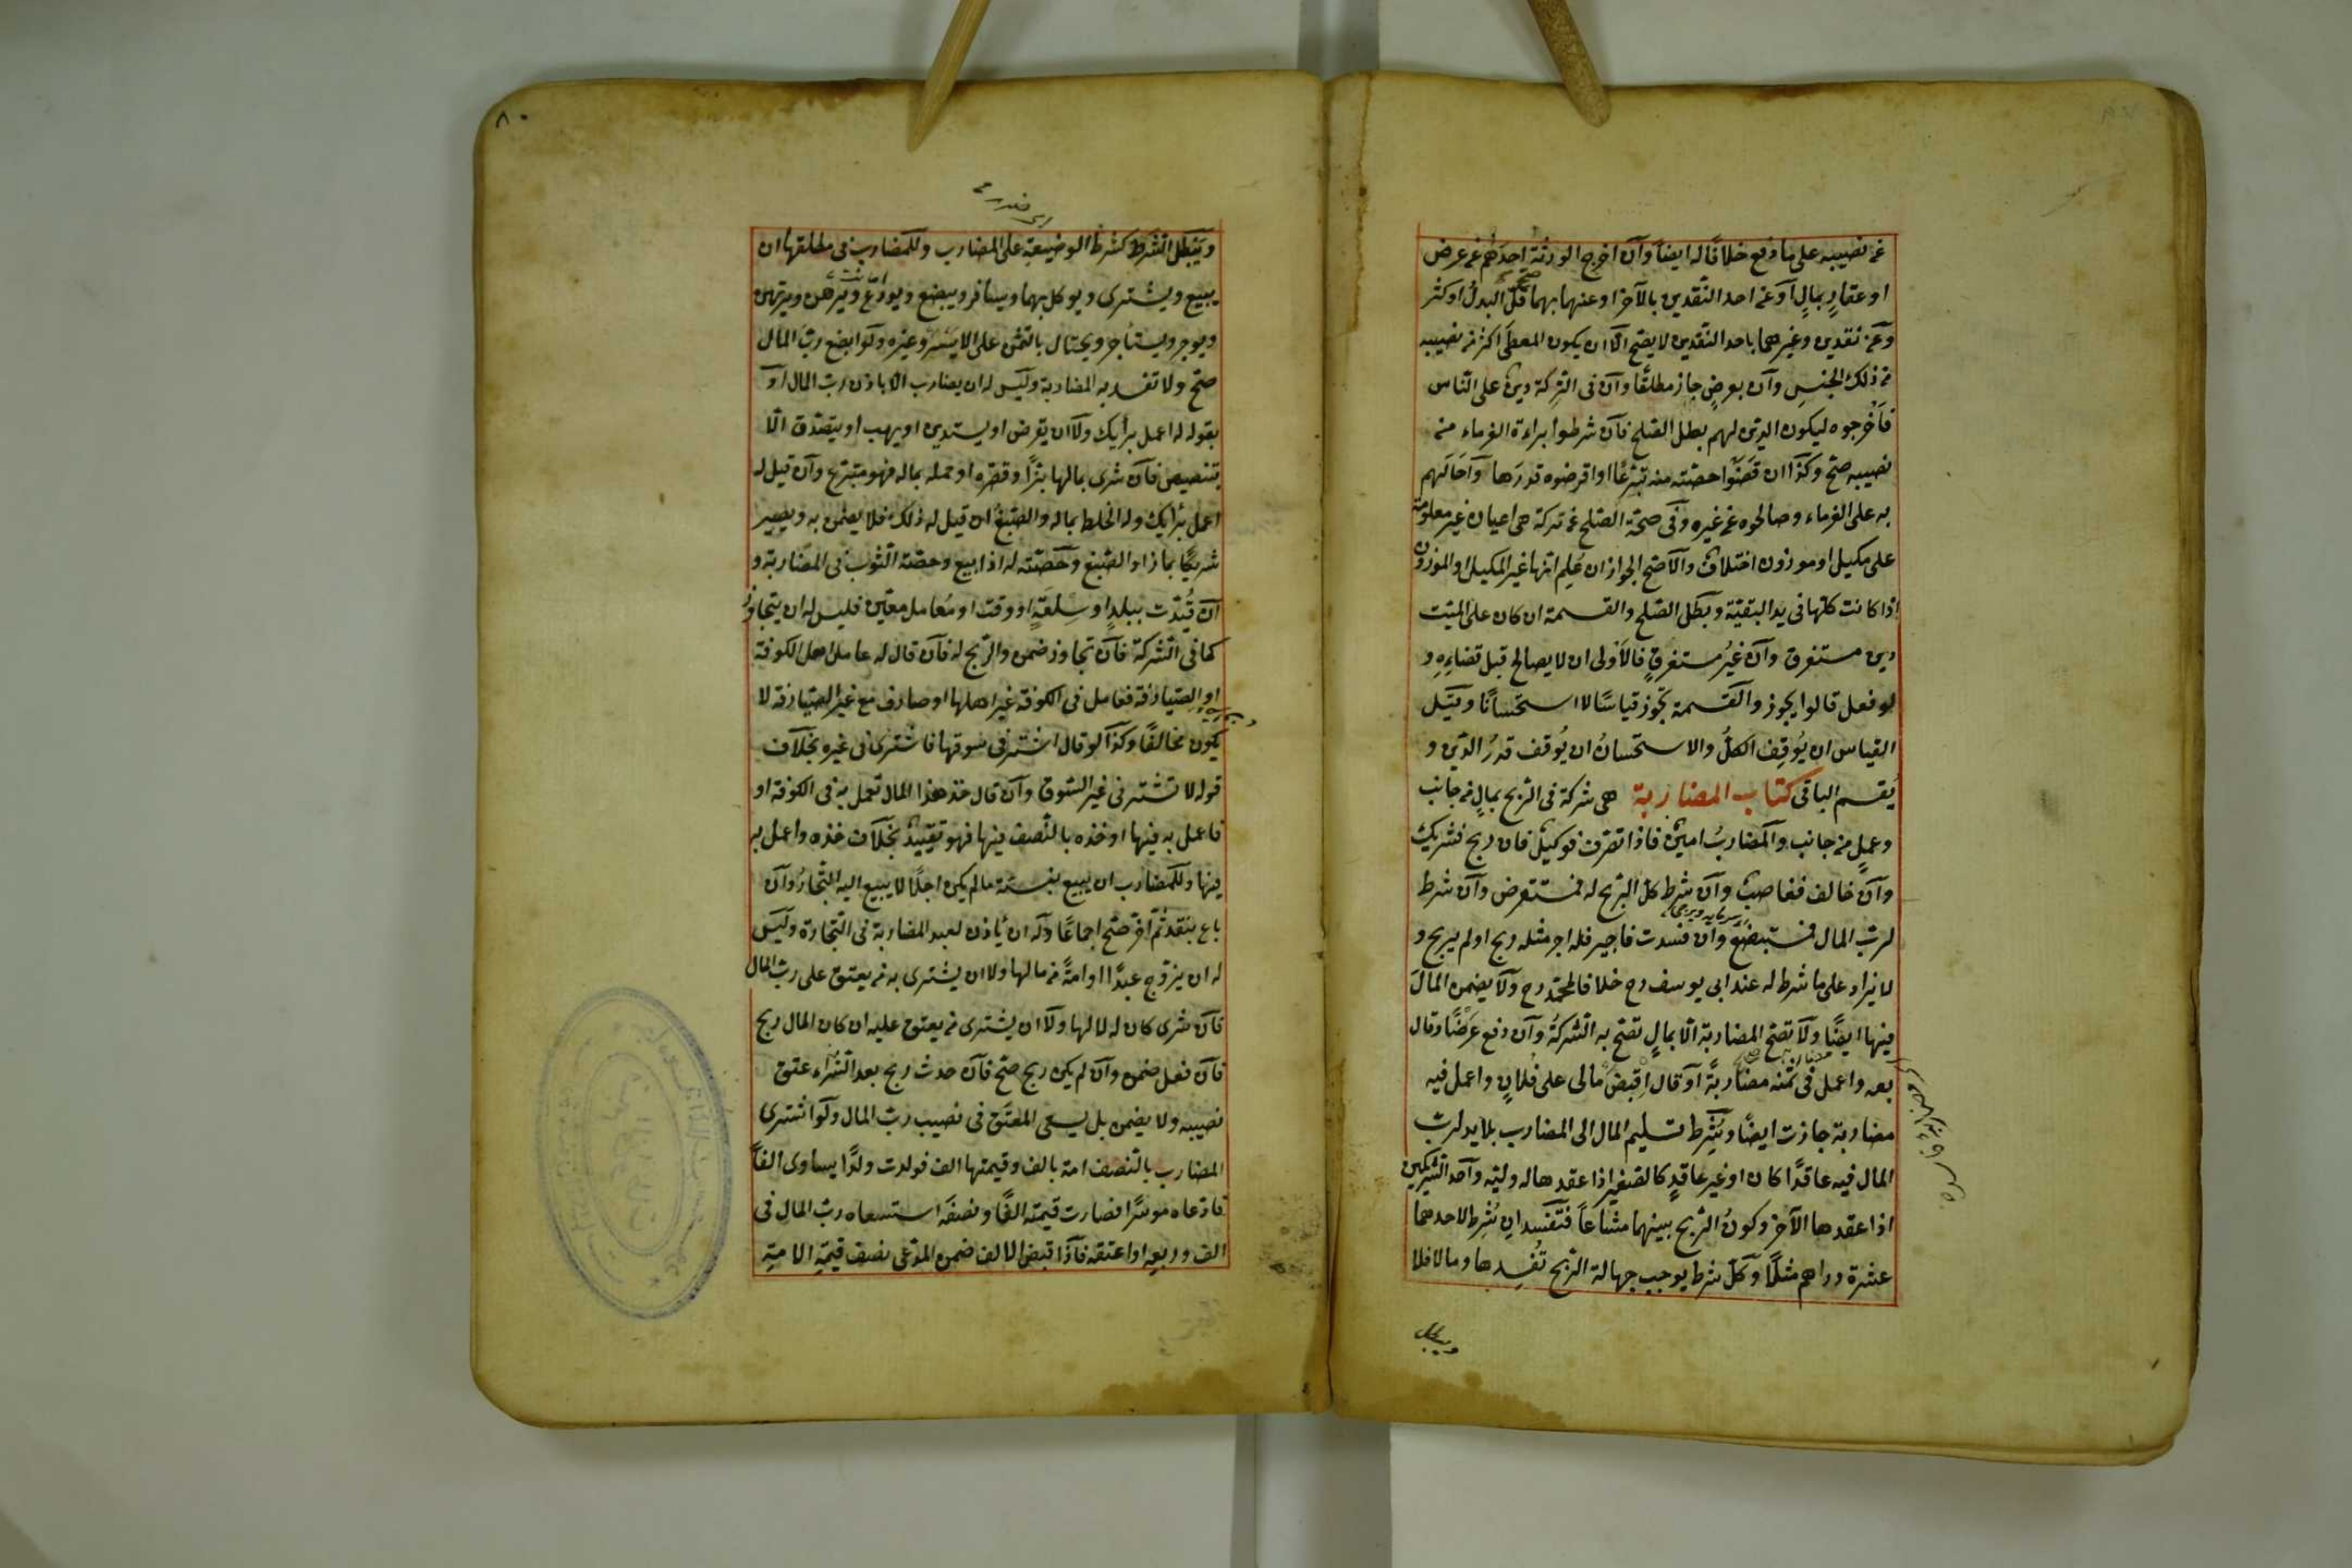 عن نصيبه على ما دفع خلافا له ايضا وآن اخرج الورثة احدهم عن عرض
او عقارٍ بمالٍ آو عن احد النقدين بالآخر او عنهما بهما صح قلّ البدلُ او كثر
وعن نقدين وغيرهما باحد النقدين لا يصح الّا ان يكون المعطَى اكثر من نصيبه
من ذلك الجنسِ وآن بعرضٍ جاز مطلقًا وآن فى التركة دينٌ على الناس
فاَخرجوه ليكون الدين لهم بطل الصلح فآن شرطوا براءة الغرماء من
نصيبه صحّ وكذا ان قضَوا حصّته منه تبرّعًا او اقرضوه قدرَها وآحالهم
به على الغرماء وصالحوه عن غيره وفى صحّة الصلح عن تركة هى اعيان غير معلومة
على مكيل او موزون اختلافٌ والآصح الجواز ان عُلِم انّها غير المكيل او الموزون
اذا كانت كلّها فى يد البقيّة وبطَل الصلح والقسمة ان كان على الميّت
دين مستغرق وآن غيرُ مستغرقٍ فالاَولى ان لا يصالح قبل قضاءِهِ و
لو فعل قالوا يجوز والقسمة تجوز قياسًا لا استحسانًا وقيّل
القياس ان يُوقِف الكلّ والاستحسانُ ان يُوقف قدرُ الدّين و
يُقسم الباقى كتاب المضاربة هى شركة فى الربح بمالٍ من جانب
وعملٍ من جانب والمضاربُ امينٌ فاذا تصرّف فوكيلٌ فان ربح فشريكٌ
وآن خالف فغاصبٌ وآن شرط كلّ الربح له فمستقرض وآن شرط
لربّ المال فمستبضعٌ وآن فسدت فاجير فله اجر مثله ربح او لم يربح و
لا يزاد على ما شرط له عند ابى يوسف رح خلافا لمحمد رح ولآ يضمن المالَ
فيها ايضًا ولآ تصحّ المضاربة الّا بمالٍ تصحّ به الشركةُ وآن دفع عَرضًا وقال
بعه واعمل فى ثمنه مضاربةً آو قال اِقبض مالى على فُلانٍ واعمل فيه
مضاربة جازت ايضًا ويُشرط تسليم المال الى المضارب بلا يد لربّ
المال فيه عاقدًا كان او غير عاقدٍ كالصغير اذا عقدها له وليّه وآحد الشريكين
اذا عقدها الآخر وكونُ الربح بينهما مشاعًا فتفسد ان شُرِط لاحدهما
عشرة دراهم مثلًا وكلّ شرط يوجب جهالة الربح تُفسِدها وما لا فلا
ويبطل
٨٠
ويَبطل الشرط كشرط الوضيعة على المضارب وللمضارب فى مطلقها ان
يبيع ويشترى ويوكل بهما ويسافر ويبضع ويودع ويرهن ويرتهن
ويوجر ويستأجر ويحتال بالثمن على الايسر وغيره ولوا بضع ربّ المال
صحّ ولا تفسد به المضاربة وليس له ان يضارب الا باذن ربّ المال او
بقوله له اعمل برأيك ولآ ان يقرض او يستدين او يهب او يتصدّق الّا
بتنصيص فآن شرى بمالها بزًّا وقصّره او حمله بماله فهو متبرّع وآن قيل له
اعمل برأيك وله الخلط بماله والصّبغُ ان قيل له ذلك فلا يضمن به ويصير
شريكًا بما زاد الصّبغ وحصّته له اذا بيع وحصّة الثوب فى المضاربة و
آن قُيّدت ببلدٍ او سِلعةٍ او وقت او مُعامل معيّن فليس له ان يتجاوز
كما فى الشركة فآن تجاوز ضمن والربح له فآن قال له عامل اهل الكوفة
او الصيارفة فعامل فى الكوفة غير اهلها او صارف مع غير الصيارفة لا
يكون مخالفًا وكذا لو قال اشتر فى سوقها فاشترى فى غيره بخلاف
قوله لا تشتر فى غير السّوق وآن قال خذ هذا المال تعمل به فى الكوفة او
فاعمل به فيها او خذه بالنّصف فيها فهو تقييدٌ بخلآف خذه واعمل به
فيها وللمضارب ان يبيع بنسئة ما لم يكن اجلًا لا يبيع اليه التّجارُ وآن
باع بنقد ثمّ اخّر صحّ اجماعًا وله ان يأذن لعبد المضاربة فى التّجارة وليس
له ان يزوّج عبدًا او امةً من مالها ولا ان يشترى به من يعتق على ربّ المال
فآن شرى كان له لا لها ولآ ان يشترى من يعتق عليه ان كان المال ربح
فآن فعل ضمن وآن لم يكن ربح صحّ فآن حدث ربح بعد الشراء عتق
نصيبه ولا يضمن بل يسعى المعتَق فى نصيب ربّ المال ولوا شترى
المضارب بالنّصف امة بالف وقيمتها الف فولدت ولدًا يساوى الفًا
فادّعاه موسرًا فصارت قيمته الفًا ونصفَه استسعاه ربّ المال فى
الف وربعِه او اعتقه فآذا قبض الالف ضمن المدّعى نصف قيمة الامةِ